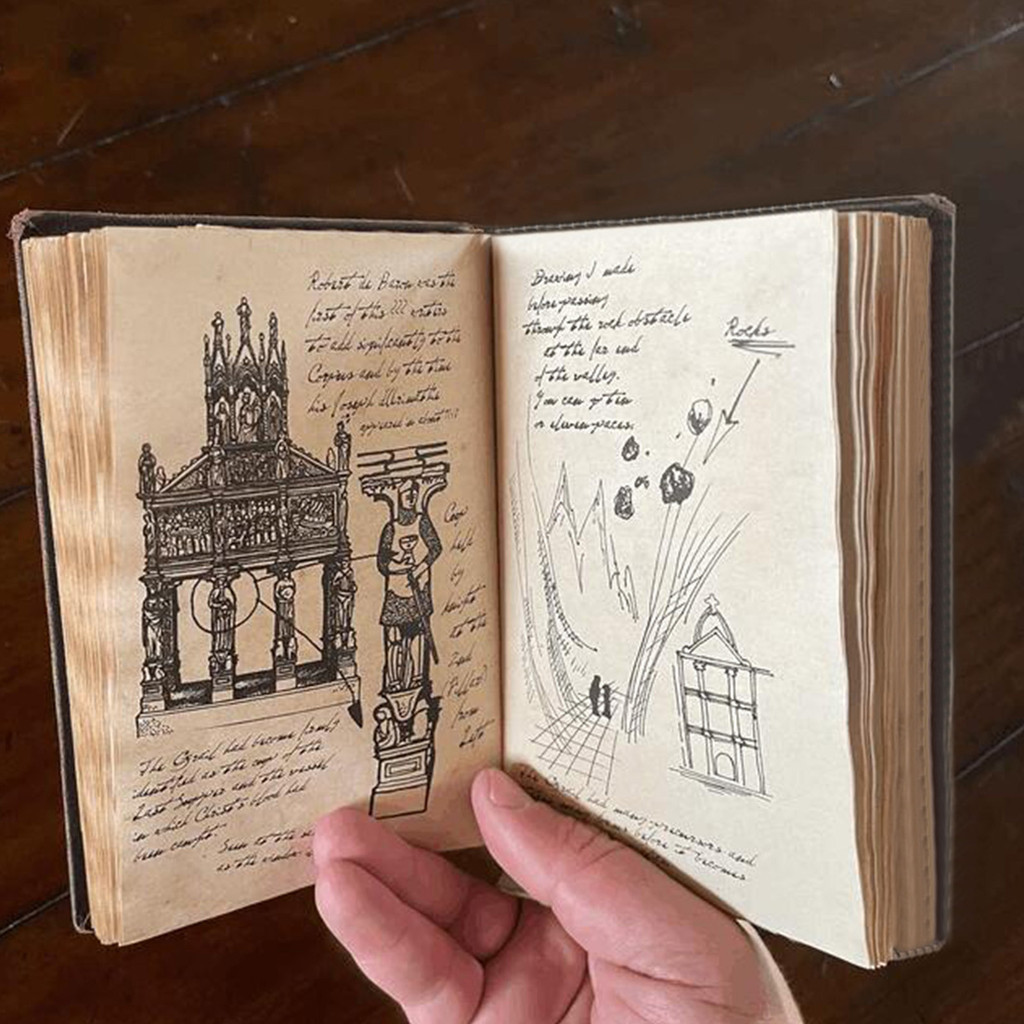 Robert de Baron was the
first of this ??? writers
to add significantly to the
Corpus and by the time
his Joseph
appeared in about
Cup
held
by
knight
at the
2nd
(Pillar)
from
Left
The Grail had become firmly
identified as the cup of the
Last Supper and the vessel
in which Christ's blood had
been caught.
Seen at the
as the
Drawing I made
before passing
through the rock obstacle
at the far end
of the valley.
You can go ten
or eleven paces.
Rocks
or
had many precursors and
before it becomes